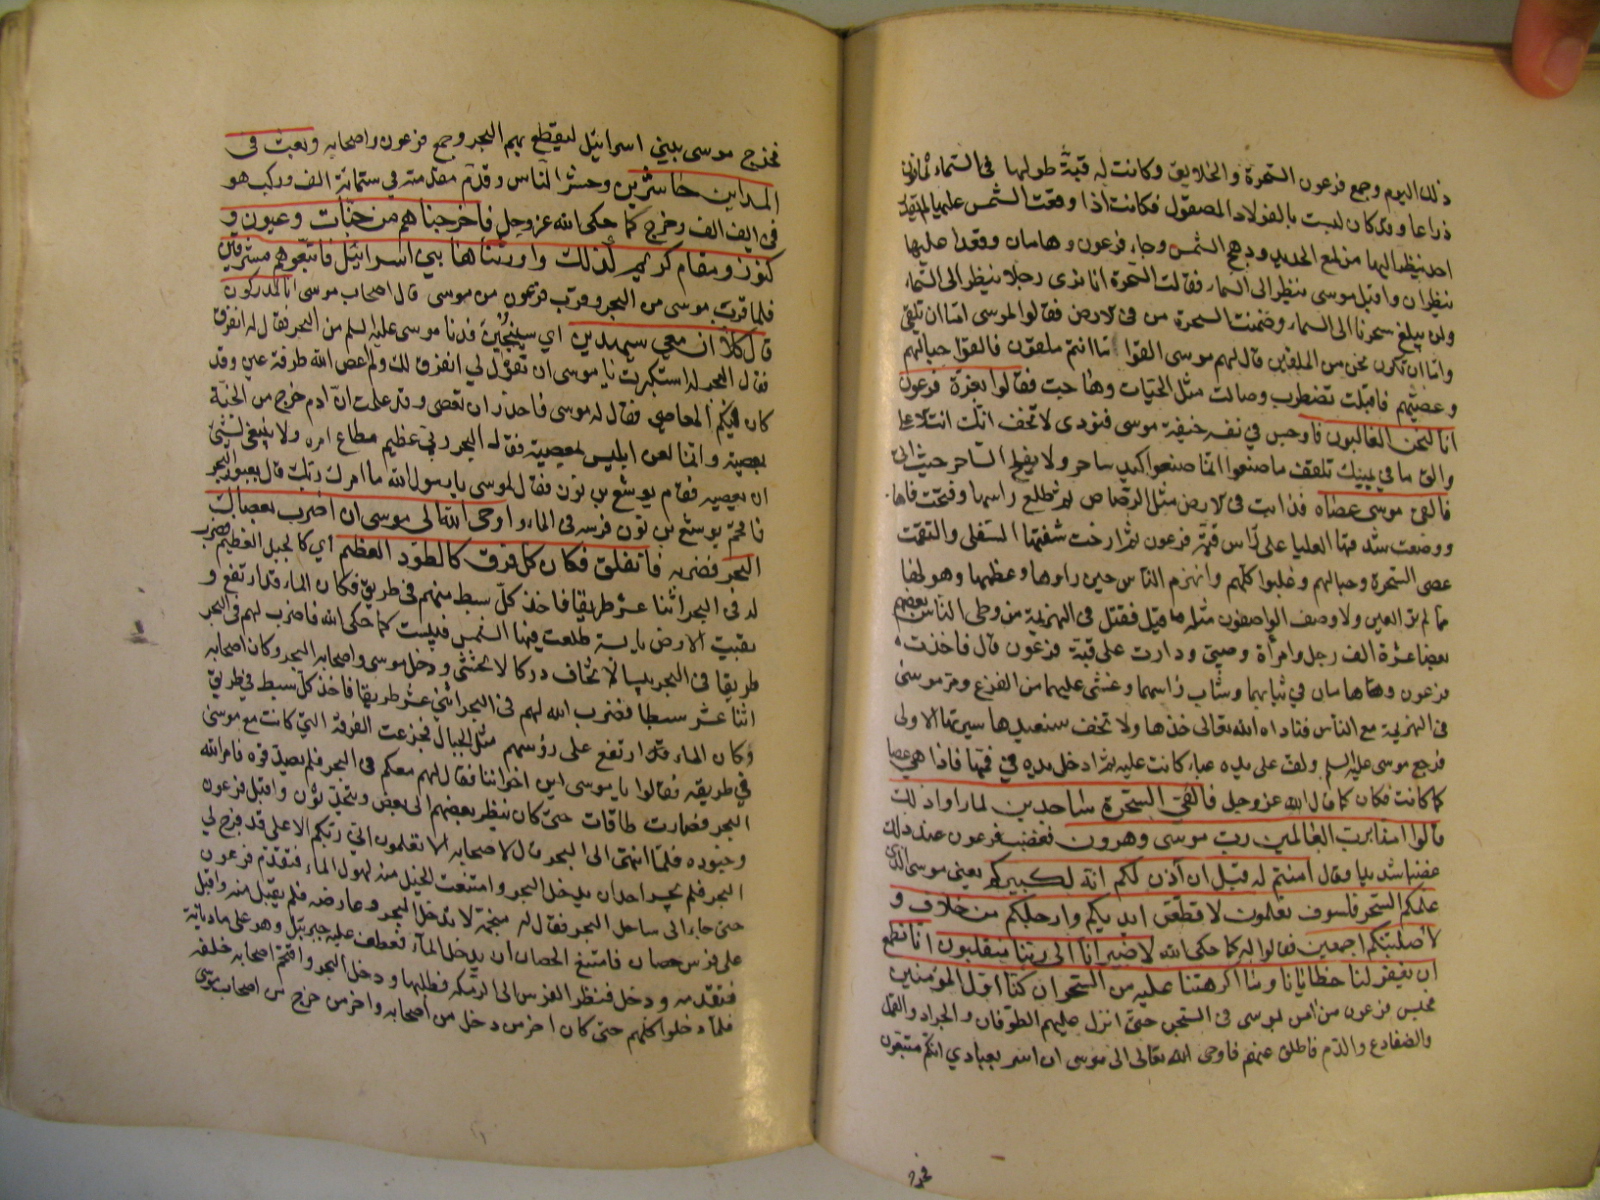 ذلك اليوم وجمع فرعون السحرة والخلايق وكانت له قبة طولها فى السماء ثمانون
ذراعا وقد كان لبست بالفولاد المصقول فكانت اذا وقعت الشمس عليها لم يقدر
احد ينظر اليها من لمع الحديد ووهج الشمس وجاء فرعون وهامان وقعدا عليها
ينظران واقبل موسى ينظر الى السماء فقالت السحرة انا نرى رجلا ينظر الى السماء
ولن يبلغ سحرنا الى السماء وضمنت السحرة من فى لارض فقالوا لموسى امّا ان تلقى
وامّا ان نكون نحن من الملقين قال لهم موسى القوا ما انتم ملقون فالقوا حبالهم
وعصيّهم فاقبلت تضطرب وصالت مثل الحيّات وهاجت فقالوا بعزة فرعون
انا لنحن الغالبون فاوجس في نفسه خيفة موسى فنودى لا تخف انك انت الاعلى
والق ما في يمينك تلقف ما صنعوا انّما صنعوا كيد ساحر ولا يفلح الساحر حيث اتى
فالقى موسى عصاه فذابت فى لارض مثل الرصاص ثم طلع راسها وفتحت فاها
ووضعت شدقها العليا على رأس قبّة فرعون ثم ارخت شفتها السفلى والتقمت
عصى السحرة وحبالهم وغلبوا كلّهم وانهزم الناس حين راوها وعظمها وهولها
مما لم تر العين ولا وصف الواصفون مثله ما قيل فقتل فى الهزيمة من وطى الناس بعضهم
بعضا عشرة الف رجل وامرأة وصبى ودارت على قبّة فرعون قال فاخذت
فرعون وهاهامان في ثيابهما وشاب رأسهما وغشى عليهما من الفزع ومر موسى
فى الهزيمة مع الناس فناداه الله تعالى خذها ولا تخف سنعيدها سيرتها الاولى
فرجع موسى عليه السلم ولف على يده عباء كانت عليه ثم ادخل يده في فمها فاذا هى عصا
كما كانت فكان كما قال الله عز وجل فالقى السحرة ساجدين لما راوا ذلك
قالوا امنا برب العالمين رب موسى وهرون فغضب فرعون عند ذلك
غضبا شديدا وقال امنتم له قبل ان آذن لكم انه لكبيركم يعنى موسى الذى
علمكم السحر فلسوف تعلمون لاقطعن ايديكم وارجلكم من خلاف و
لأصلبنّكم اجمعين فقالوا له كما حكى الله لا ضير انا الى ربنا منقلبون انا نطمع
ان يغفر لنا خطايانا وما اكرهتنا عليه من السحر ان كنا اوّل المؤمنين
فحبس فرعون من آمن لموسى فى السجن حتى انزل عليهم الطوفان والجراد والقمل
والضفادع والدّم فاطلق عنهم فاوحى الله تعالى الى موسى ان اسر بعبادي انكم متبعون
فخرج
فخرج موسى ببني اسرائيل ليقطع بهم البحر وجمع فرعون واصحابه وبعث فى
المداين حاشرين وحشر الناس وقدّم مقدمته في ستمائة الف وركب هو
فى الف الف وخرج كما حكى الله عز وجل فاخرجناهم من جنّات وعيون و
كنوز ومقام كريم كذلك واورثناها بني اسرائيل فاتبعوهم مشرقين
فلما قرب موسى من البحر وقرب فرعون من موسى قال اصحاب موسى انا لمدركون
قال كلّا ان معي ربي سيهدين اي سينجّين فدنا موسى عليه السلم من البحر فقال له انفرق
فقال البحر له استكبرت يا موسى ان تقول لي انفرق لك ولم اعص الله طرفة عين وقد
كان فيكم المعاصى فقال له موسى فاحذر ان تعصى وقد علمت انّ آدم خرج من الجنّة
بمعصية وانّما لعن ابليس بمعصية فقال البحر ربّي عظيم مطاع امره ولا ينبغى لشئ
ان يعصيه فقام يوشع بن نون فقال لموسى يا رسول الله ما امرك ربك قال بعبور البحر
فاقحم يوشع بن نون فرسه فى الماء واوحى الله الى موسى ان اضرب بعصاك
البحر فضربه فانفلق فكان كل فرق كالطود العظيم اي كالجبل العظيم فضرب
له فى البحر اثنا عشر طريقا فاخذ كلّ سبط منهم فى طريق فكان الماء قد ارتفع و
بقيت الارض يابسة طلعت فيها الشمس فيبست كما حكى الله فاضرب لهم فى البحر
طريقا فى البحر يبسا لا تخاف دركا لا تخشى ودخل موسى واصحابه البحر وكان اصحابه
اثنا عشر سبطا فضرب الله لهم فى البحر اثني عشر طريقا فاخذ كلّ سبط في طريق
وكان الماء قد ارتفع على رؤسهم مثل الجبال فجزعت الفرقة التي كانت مع موسى
في طريقه فقالوا يا موسى اين اخواننا فقال لهم معكم فى البحر فلم يصدّقوه فامر الله
البحر فصارت طاقات حتى كان ينظر بعضهم الى بعض ويتحدّثون واقبل فرعون
وجنوده فلمّا انتهى الى البحر قال لاصحابه الا تعلمون انى ربكم الاعلى قد فرج لي
البحر فلم يجسر احد ان يدخل البحر وامتنعت الخيل منه لهول الماء فتقدم فرعون
حتى جاء الى ساحل البحر فقال له منجّمه لا تدخل البحر وعارضه فلم يقبل منه واقبل
على فرس حصان فامتنع الحصان ان يدخل المآء فعطف عليه جبرئيل وهو على ماديانة
فتقدّمه ودخل فنظر الفرس الى الرمكة فطلبها ودخل البحر واقتحم اصحابه خلفه
فلمّا دخلوا كلّهم حتى كان اخر من دخل من اصحابه واخر من خرج من اصحاب موسى